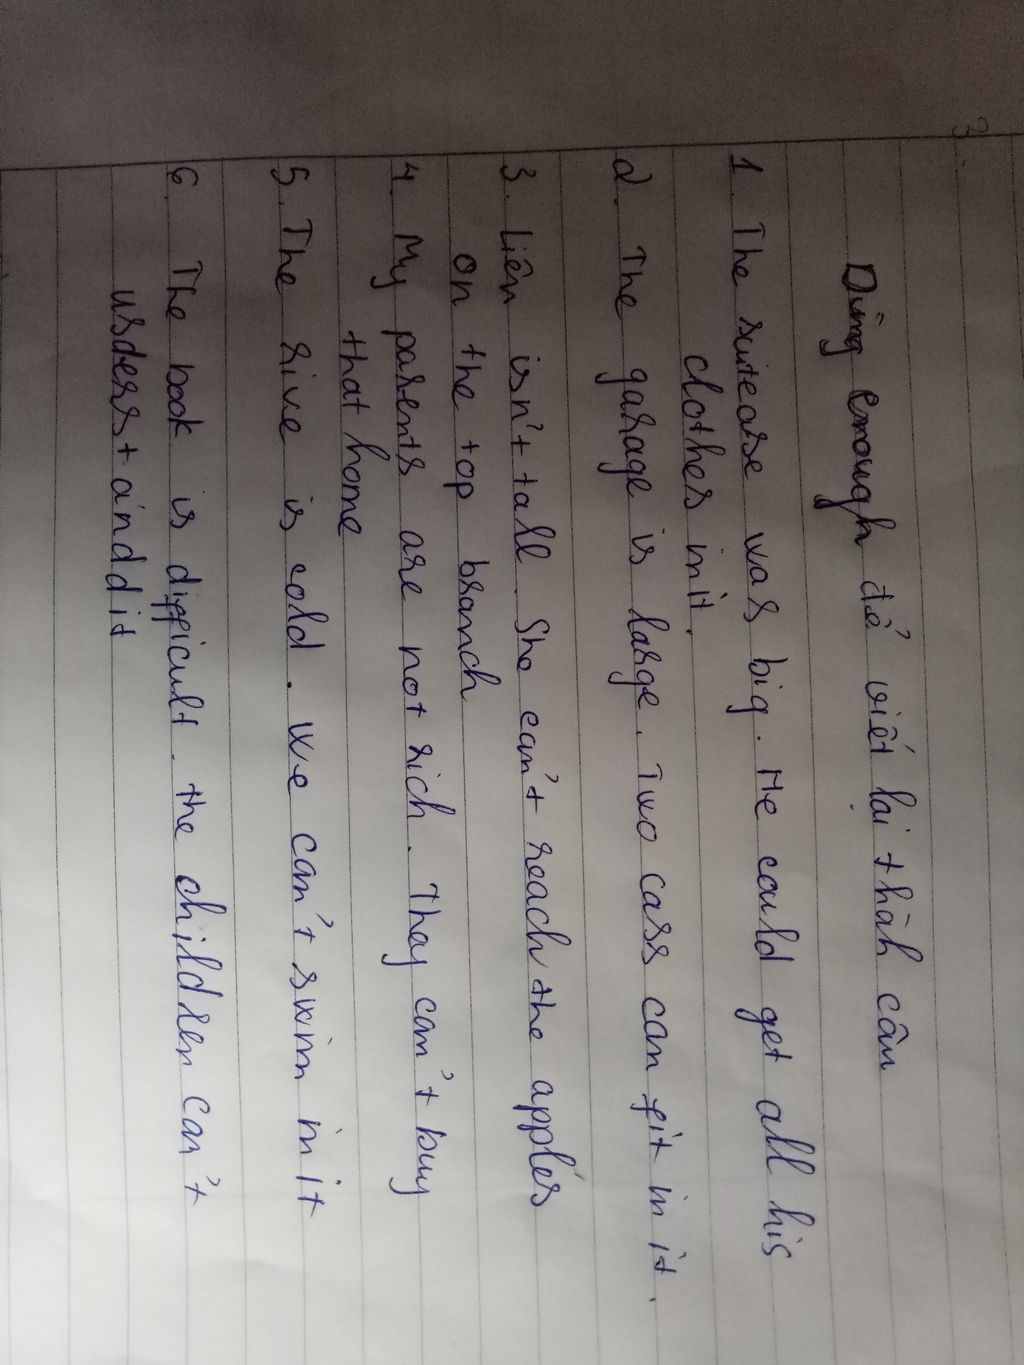 3.
Dùng enough để viết lại thành câu
1. The suitcase was big. He could get all his
clothes in it.
2. The garage is large. Two cars can fit in it.
3. Liên isn't tall. She can't reach the apples
on the top branch
4. My parents are not rich. They can't buy
that home
5. The rive is cold. We can't swim in it
6. The book is difficult. the children can't